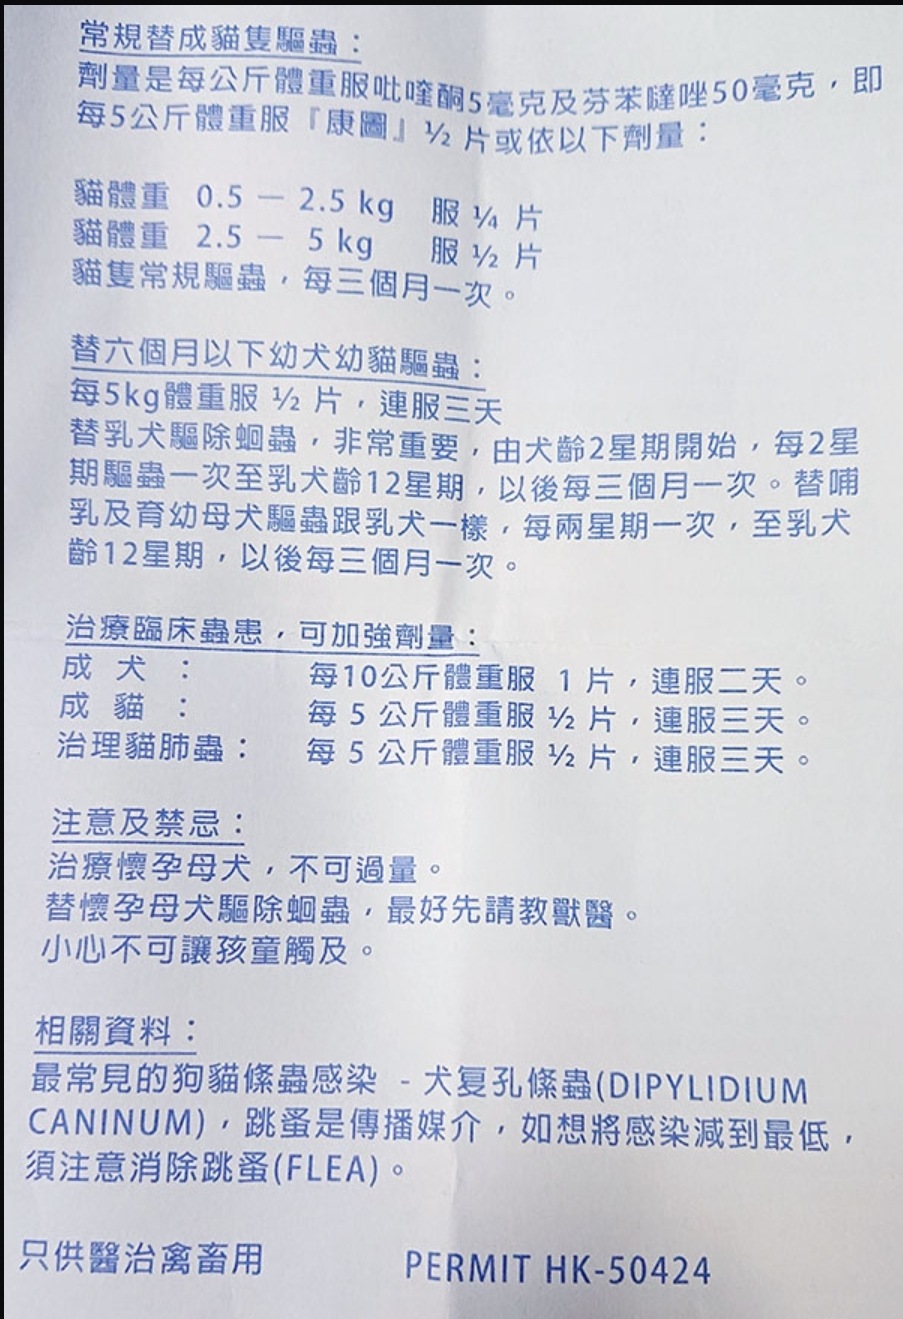 常規替成貓隻驅蟲：
劑量是每公斤體重服吡喹酮5毫克及芬苯噠唑50毫克，即
每5公斤體重服『康圖』½ 片或依以下劑量：
貓體重 0.5 － 2.5 kg 服 ¼ 片
貓體重 2.5 － 5 kg 服 ½ 片
貓隻常規驅蟲，每三個月一次。
替六個月以下幼犬幼貓驅蟲：
每5kg體重服 ½ 片，連服三天
替乳犬驅除蛔蟲，非常重要，由犬齡2星期開始，每2星
期驅蟲一次至乳犬齡12星期，以後每三個月一次。替哺
乳及育幼母犬驅蟲跟乳犬一樣，每兩星期一次，至乳犬
齡12星期，以後每三個月一次。
治療臨床蟲患，可加強劑量：
成 犬 ： 每10公斤體重服 1 片，連服二天。
成 貓 ： 每 5 公斤體重服 ½ 片，連服三天。
治理貓肺蟲： 每 5 公斤體重服 ½ 片，連服三天。
注意及禁忌：
治療懷孕母犬，不可過量。
替懷孕母犬驅除蛔蟲，最好先請教獸醫。
小心不可讓孩童觸及。
相關資料：
最常見的狗貓絛蟲感染 - 犬复孔絛蟲(DIPYLIDIUM
CANINUM)，跳蚤是傳播媒介，如想將感染減到最低，
須注意消除跳蚤(FLEA)。
只供醫治禽畜用 PERMIT HK-50424